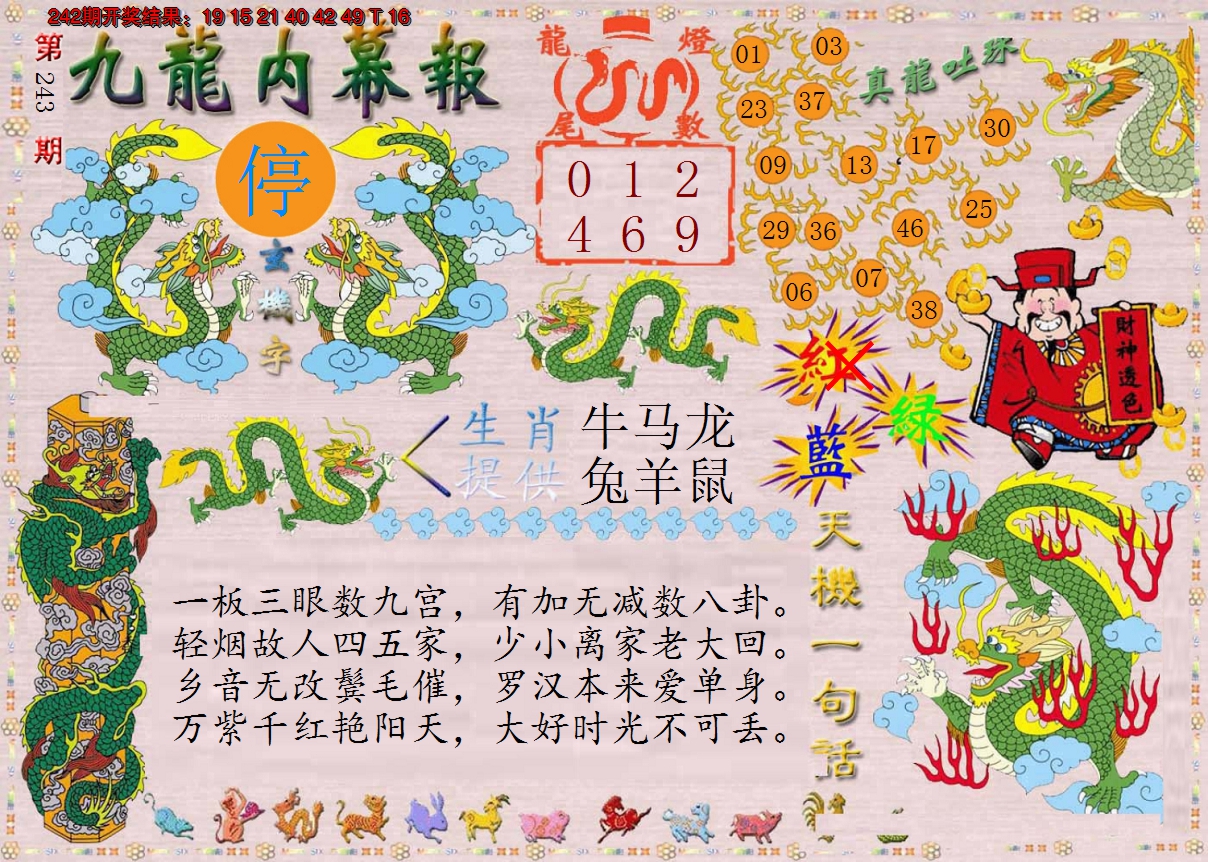 242期开奖结果：19 15 21 40 42 49 T 16
第243期
九龍内幕報
停
玄機字
龍燈
尾數
0 1 2
4 6 9
真龍吐珠
01 03
23 37
30
17
09 13
25
29 36 46
07
06 38
紅
綠
藍
財神透色
生肖 牛马龙
提供 兔羊鼠
天機一句話
一板三眼数九宫，有加无减数八卦。
轻烟故人四五家，少小离家老大回。
乡音无改鬓毛催，罗汉本来爱单身。
万紫千红艳阳天，大好时光不可丢。